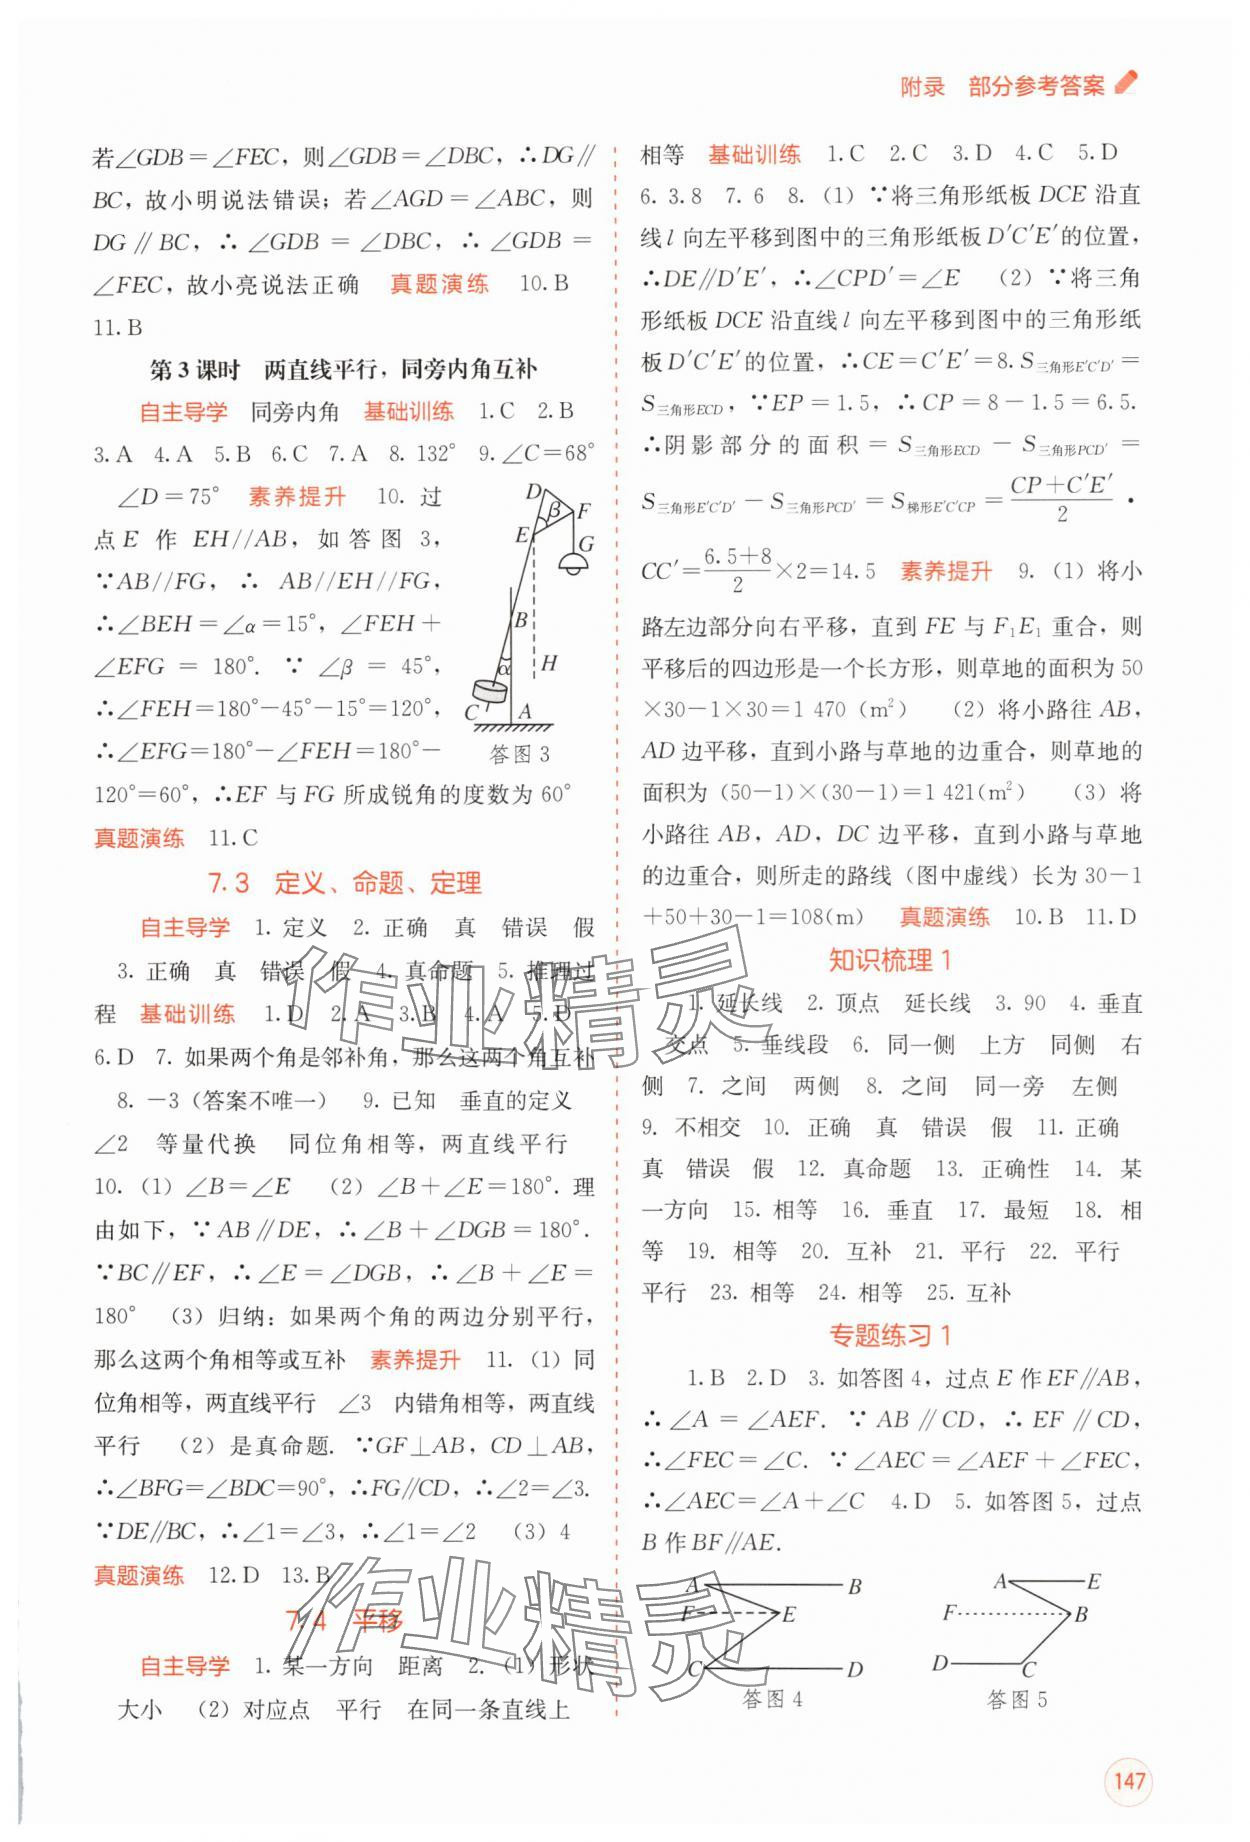 附录 部分参考答案
若∠GDB=∠FEC，则∠GDB=∠DBC，∴DG∥
BC，故小明说法错误；若∠AGD=∠ABC，则
DG∥BC，∴∠GDB=∠DBC，∴∠GDB=
∠FEC，故小亮说法正确 真题演练 10.B
11.B
第3课时 两直线平行，同旁内角互补
自主导学 同旁内角 基础训练 1.C 2.B
3.A 4.A 5.B 6.C 7.A 8.132° 9.∠C=68°
∠D=75° 素养提升 10. 过
点E 作 EH//AB，如答图3，
∵AB//FG，∴ AB//EH//FG，
∴∠BEH=∠α=15°，∠FEH+
∠EFG=180°. ∵ ∠β=45°，
∴∠FEH=180°-45°-15°=120°，
∴∠EFG=180°-∠FEH=180°-
120°=60°，∴EF 与 FG 所成锐角的度数为60°
D
β
F
E
G
B
α
H
C
A
答图3
真题演练 11.C
7.3 定义、命题、定理
自主导学 1. 定义 2. 正确 真 错误 假
3. 正确 真 错误 假 4. 真命题 5. 推理过
程 基础训练 1.D 2.A 3.B 4.A 5.D
6.D 7. 如果两个角是邻补角，那么这两个角互补
8. -3(答案不唯一) 9. 已知 垂直的定义
∠2 等量代换 同位角相等，两直线平行
10.(1)∠B=∠E (2)∠B+∠E=180°. 理
由如下，∵AB∥DE，∴∠B+∠DGB=180°.
∵BC∥EF，∴∠E=∠DGB，∴∠B+∠E=
180° (3)归纳：如果两个角的两边分别平行，
那么这两个角相等或互补 素养提升 11.(1)同
位角相等，两直线平行 ∠3 内错角相等，两直线
平行 (2)是真命题. ∵GF⊥AB，CD⊥AB，
∴∠BFG=∠BDC=90°，∴FG∥CD，∴∠2=∠3.
∵DE∥BC，∴∠1=∠3，∴∠1=∠2 (3)4
真题演练 12.D 13.B
7.4 平移
自主导学 1. 某一方向 距离 2.(1)形状
大小 (2)对应点 平行 在同一条直线上
相等 基础训练 1.C 2.C 3.D 4.C 5.D
6.3.8 7.6 8.(1)∵将三角形纸板DCE沿直
线l向左平移到图中的三角形纸板D′C′E′的位置，
∴DE∥D′E′，∴∠CPD′=∠E (2)∵将三角
形纸板DCE沿直线l向左平移到图中的三角形纸
板D′C′E′的位置，∴CE=C′E′=8.S三角形E′C′D′=
S三角形ECD，∵EP=1.5，∴CP=8-1.5=6.5.
∴阴影部分的面积=S三角形ECD-S三角形PCD′=
S三角形E′C′D′-S三角形PCD′=S梯形E′C′CP=(CP+C′E′)/2·
CC′=(6.5+8)/2×2=14.5 素养提升 9.(1)将小
路左边部分向右平移，直到FE与F₁E₁重合，则
平移后的四边形是一个长方形，则草地的面积为50
×30-1×30=1 470(m²) (2)将小路往AB，
AD边平移，直到小路与草地的边重合，则草地的
面积为(50-1)×(30-1)=1 421(m²) (3)将
小路往AB，AD，DC边平移，直到小路与草地
的边重合，则所走的路线(图中虚线)长为30-1
+50+30-1=108(m) 真题演练 10.B 11.D
知识梳理1
1. 延长线 2. 顶点 延长线 3.90 4. 垂直
交点 5. 垂线段 6. 同一侧 上方 同侧 右
侧 7. 之间 两侧 8. 之间 同一旁 左侧
9. 不相交 10. 正确 真 错误 假 11. 正确
真 错误 假 12. 真命题 13. 正确性 14. 某
一方向 15. 相等 16. 垂直 17. 最短 18. 相
等 19. 相等 20. 互补 21. 平行 22. 平行
平行 23. 相等 24. 相等 25. 互补
专题练习1
1.B 2.D 3. 如答图4，过点E作EF∥AB，
∴∠A=∠AEF. ∵AB∥CD，∴EF∥CD，
∴∠FEC=∠C. ∵∠AEC=∠AEF+∠FEC，
∴∠AEC=∠A+∠C 4.D 5. 如答图5，过点
B作BF∥AE.
A B
F E
C D
答图4
A E
F B
D C
答图5
作业精灵
作业精灵
147